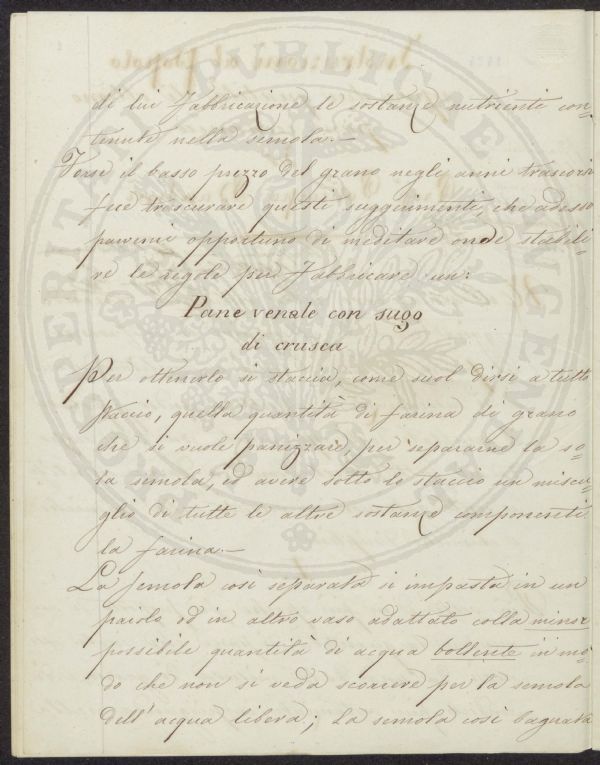 di lui fabbricazione le sostanze nutrienti con=
tenute nella semola.—
Forse il basso prezzo del grano negli anni trascorsi
fece trascurare questi suggerimenti, che adesso
parvemi opportuno di meditare onde stabili=
re le regole per fabbricare un:
Pane venale con sugo
di crusca
Per ottenerlo si staccia, come suol dirsi a tutto
staccio, quella quantità di farina di grano
che si vuole panizzare, per separarne la so=
la semola, ed avere sotto lo staccio un miscu=
glio di tutte le altre sostanze componenti
la farina.—
La semola così separata si impasta in un
paiolo od in altro vaso adattato colla minor
possibile quantità di acqua bollente in mo=
do che non si veda scorrere per la semola
dell'acqua libera; la semola così bagnata
PROSPERITATI PUBLICAE